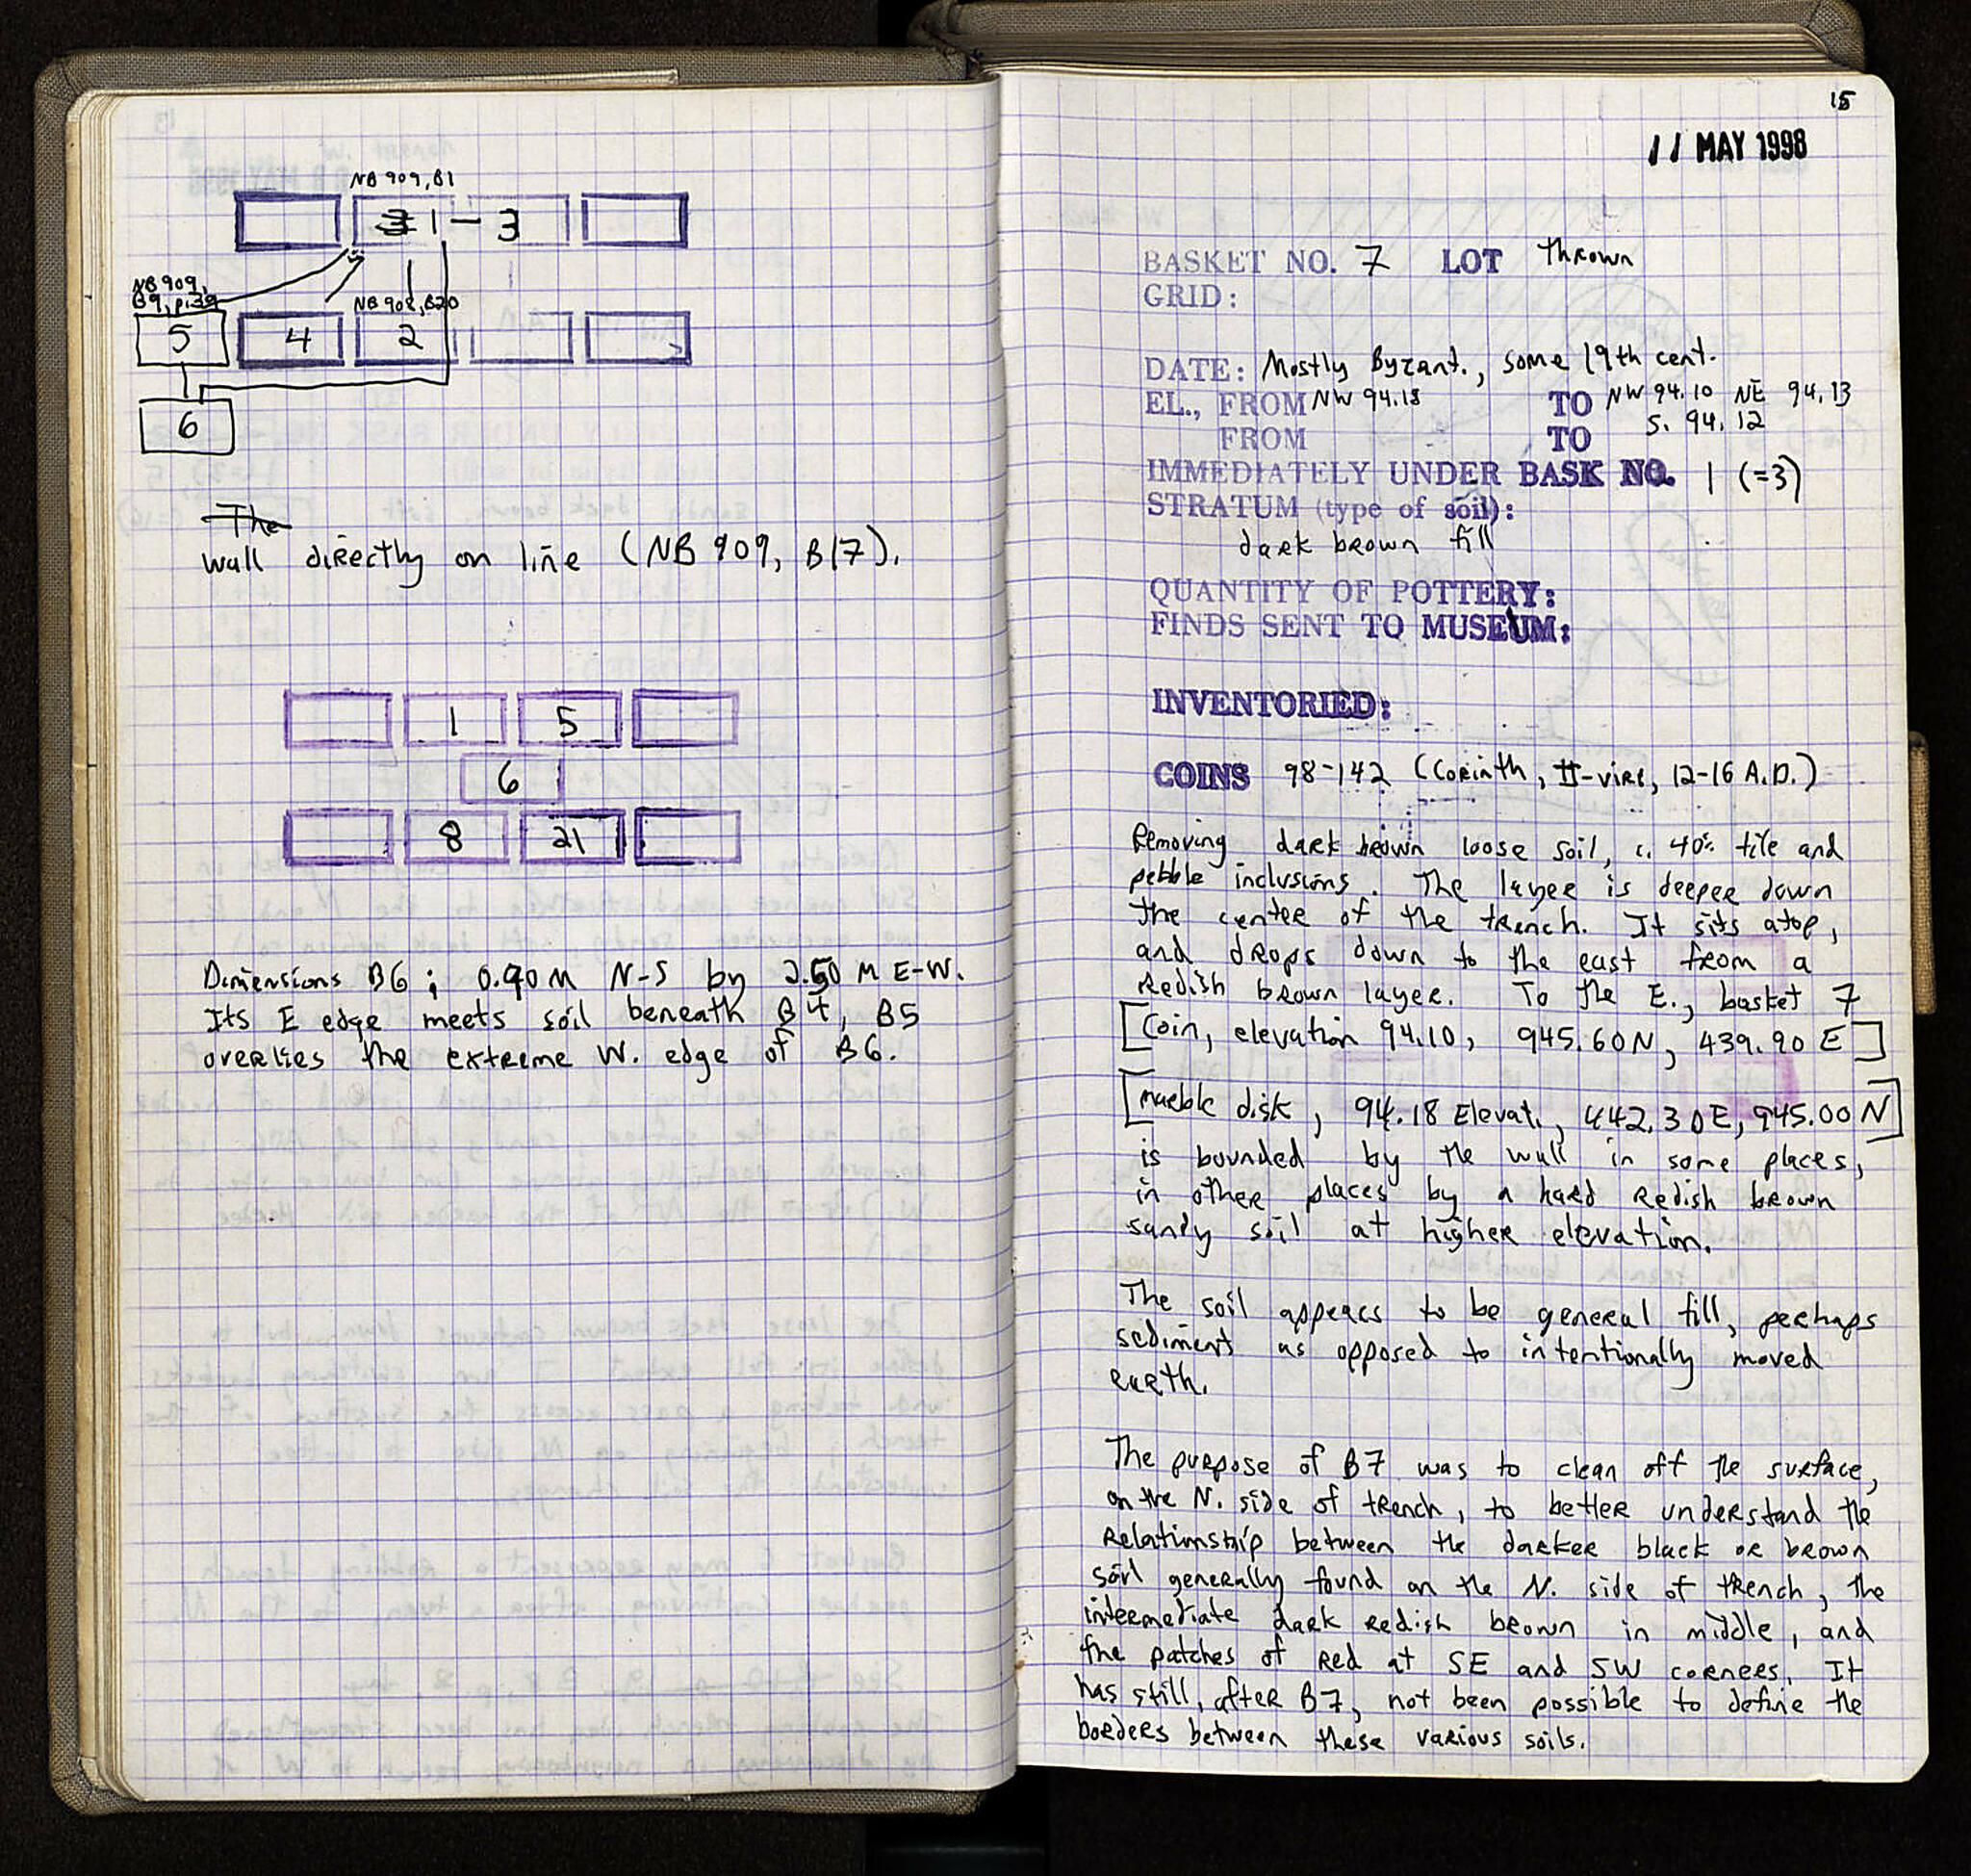 NB 909, B1
3 1 — 3
NB 909,
B9, p.39
NB 908, B20
5 4 2
6
The
wall directly on line (NB 909, B17).
1 5
6
8 21
Dimensions B6 ; 0.90 M N-S by 2.50 M E-W.
Its E edge meets soil beneath B4, B5
overlies the extreme W. edge of B6.
15
11 MAY 1998
BASKET NO. 7 LOT Thrown
GRID:
DATE: Mostly Byzant., some 19th cent.
EL., FROM NW 94.18 TO NW 94.10 NE 94.13
FROM TO S. 94.12
IMMEDIATELY UNDER BASK NO. 1 (=3)
STRATUM (type of soil):
dark brown fill
QUANTITY OF POTTERY:
FINDS SENT TO MUSEUM:
INVENTORIED:
COINS 98-142 (Corinth, II-vire, 12-16 A.D.)
Removing dark brown loose soil, c. 40% tile and
pebble inclusions. The layer is deeper down
the center of the trench. It sits atop,
and drops down to the east from a
redish brown layer. To the E., basket 7
[Coin, elevation 94.10, 945.60 N, 439.90 E]
[marble disk, 94.18 Elevat., 442.30 E, 945.00 N]
is bounded by the wall in some places,
in other places by a hard redish brown
sandy soil at higher elevation.
The soil appears to be general fill, perhaps
sediment as opposed to intentionally moved
earth.
The purpose of B7 was to clean off the surface,
on the N. side of trench, to better understand the
relationship between the darker black or brown
soil generally found on the N. side of trench, the
intermetiate dark redish brown in middle, and
the patches of red at SE and SW corners. It
has still, after B7, not been possible to define the
borders between these various soils.